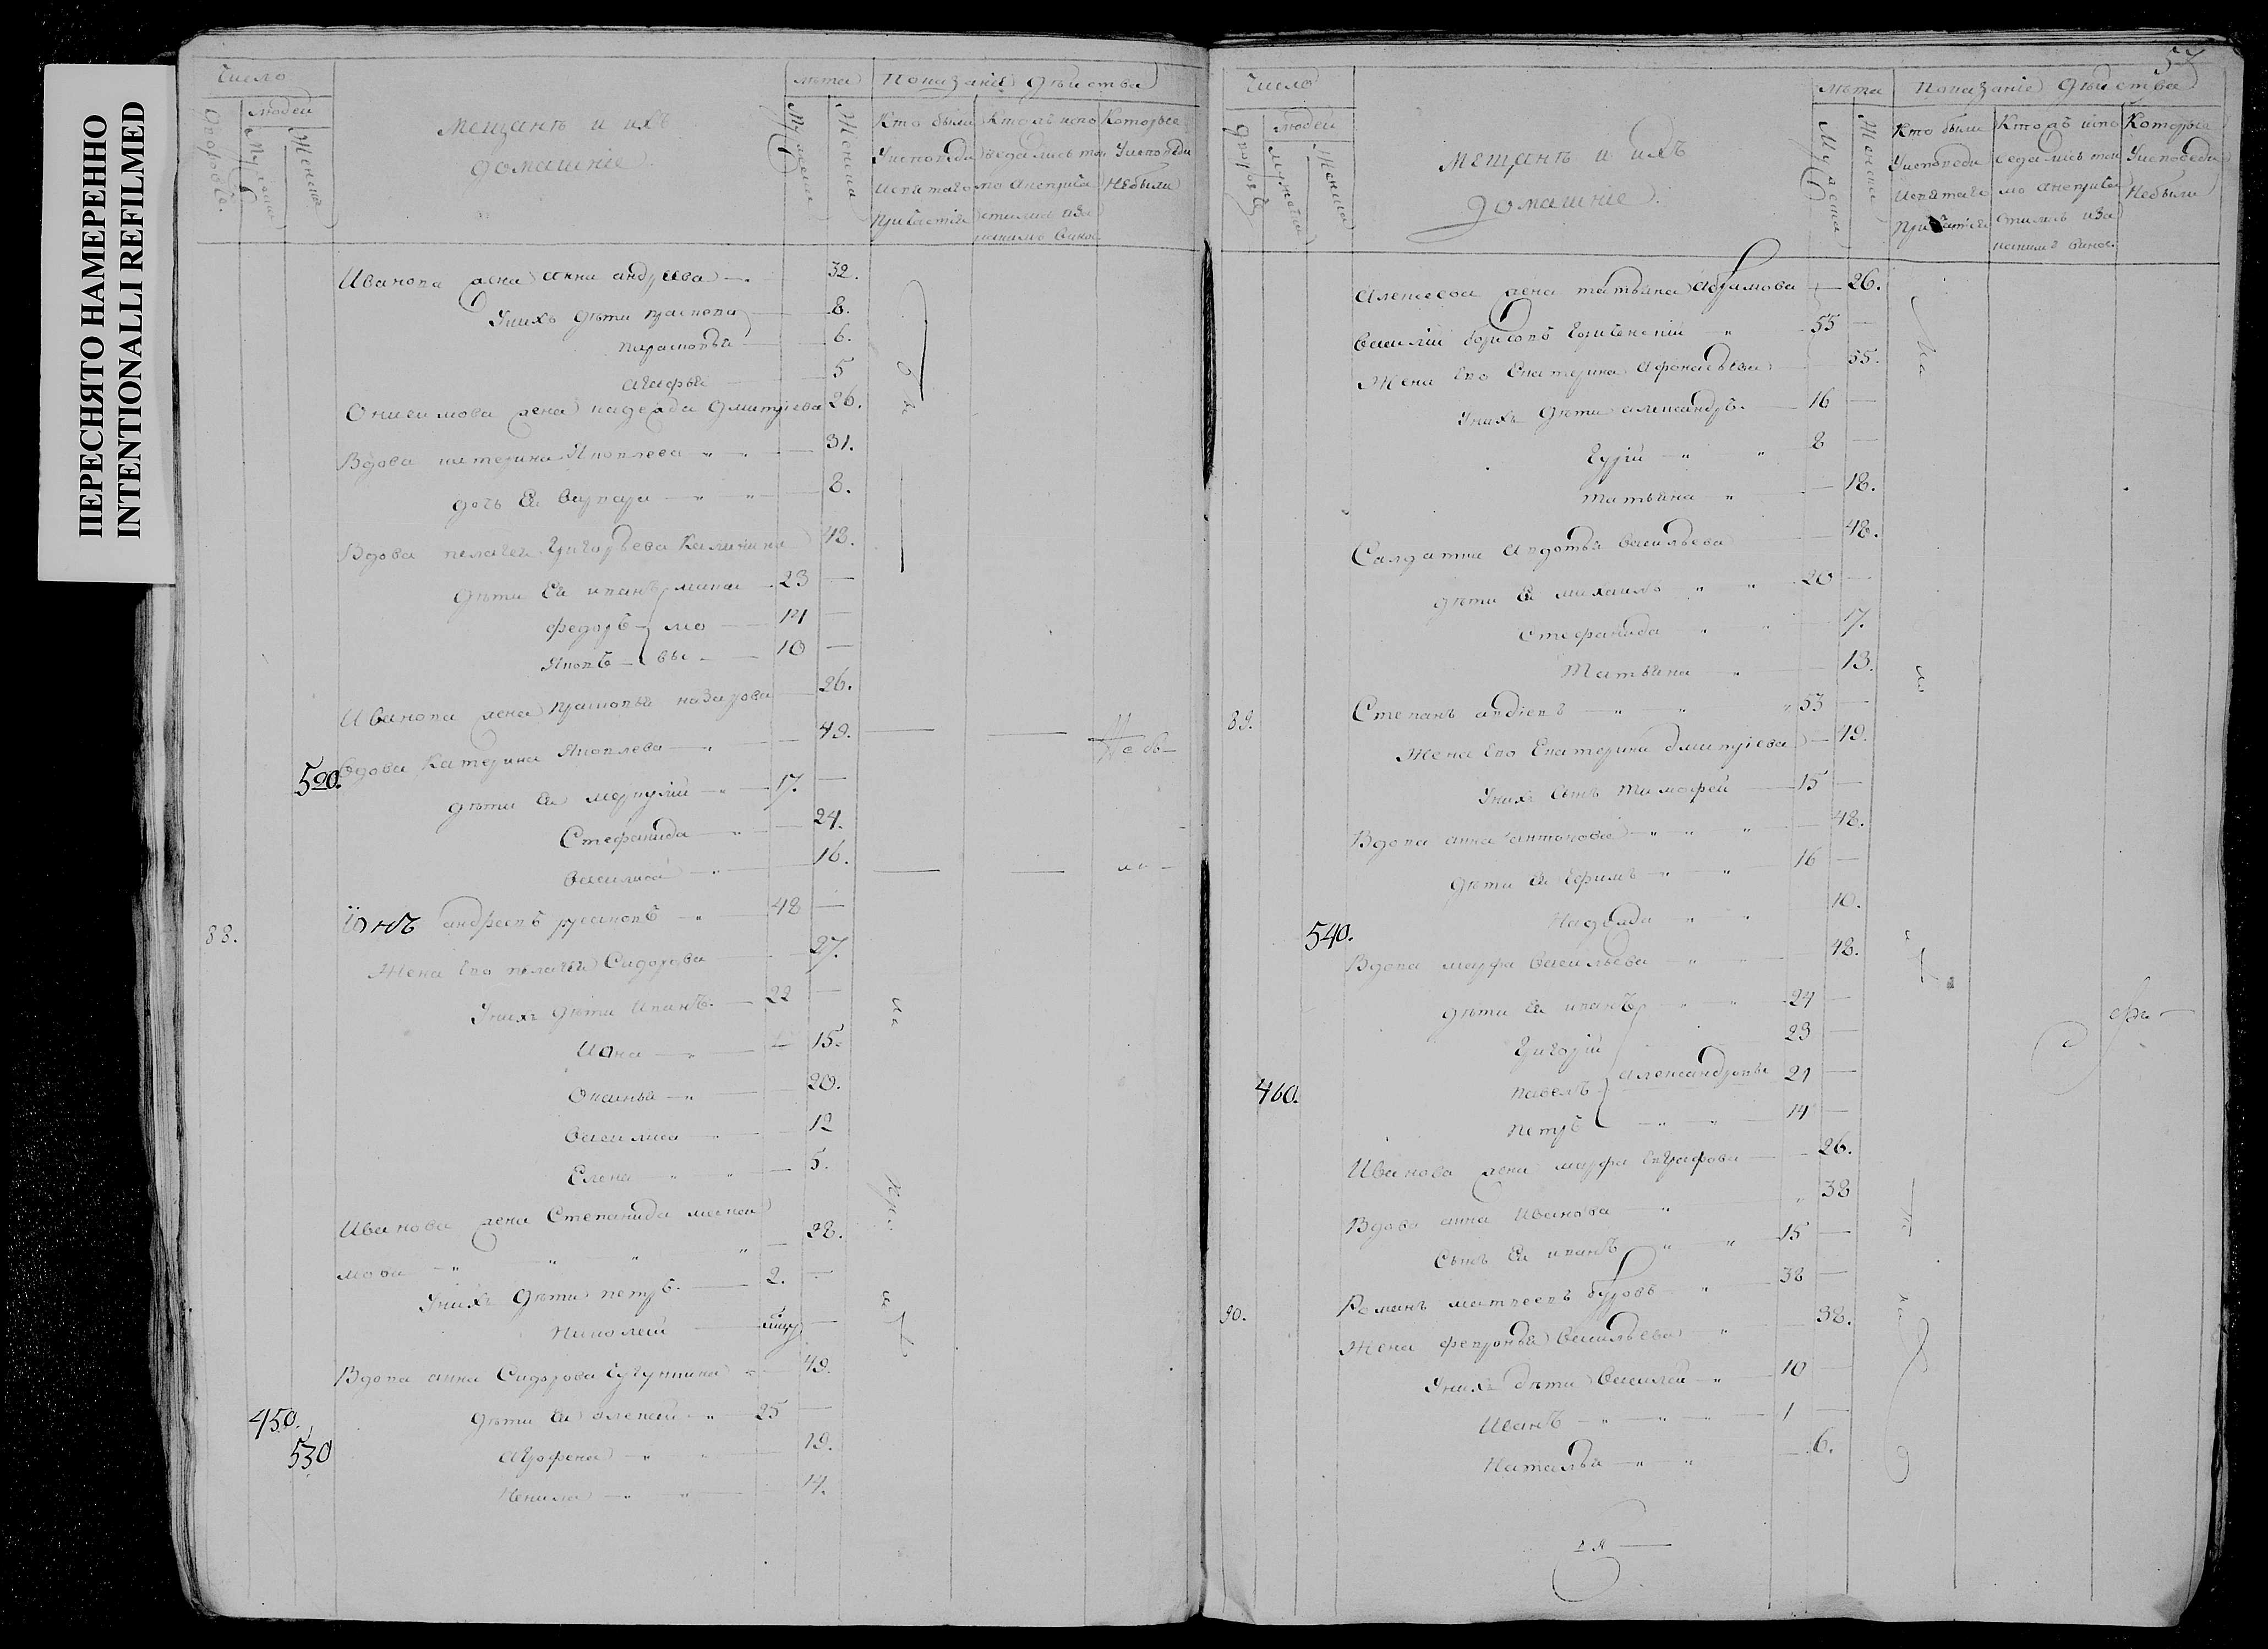 ПЕРЕСНЯТО НАМЕРЕННО
INTENTIONALLI REFILMED
Число
Дворовъ.
людей
Мужска
Женска
Мещанъ и ихъ
домашніе
лѣта
Мужеска
Женска
Показаніе действа
Кто были
Уисповеди
Исвятаго
Причастія
Кто лъ испо
ведались то
мо анепричи
стились иза
какимъ винос.
Которые
Уисповеди
Небыли
Иванова жена анна андреева 32.
Унихъ дѣти прасковя 8.
парасковья 6.
агафья 5
Онисимова жена надежда дмитріева 26.
Вдова катерина Яковлева 31.
дочь Ея варвара 8.
Вдова пелагея Григорьева Калинина 43.
дѣти Ея иванъ 23
федоръ 14
Яковъ 10
Иванова жена прасковья назарова 26.
520.
Вдова Катерина Яковлева 49.
Не бы
дѣти Ея меркурій 17.
Стефанида 24.
василиса 16.
88.
Іонъ андреевъ русановъ 48
Жена Его пелагея Сидорова 27.
Унихъ дѣти Иванъ. 22
Иона 15.
20.
василиса 12
Елена 5.
Иванова жена Степанида макси
мова 28.
Унихъ дѣти петръ. 2.
Николай
Вдова анна Сидорова 49.
450.
дѣти Ея алексей 25
530
аграфена 19.
Ненила 14.
57
Число
Дворовъ
людей
Мужска
Женска
Мещанъ и ихъ
домашніе.
лѣта
Мужеска
Женска
Показаніе действа
Кто были
Уисповеди
Исвятаго
Причастія
Кто лъ испо
ведались то
мо анепричи
стились иза
какимъ винос.
Которые
Уисповеди
Небыли
Алексеева жена татьяна абрамова 26.
василій борисовъ 55
Жена Его Екатерина афонасьева 55.
Унихъ дѣти александръ. 16
Гурій 8
татьяна 18.
Салдатка авдотья васильева 48.
дѣти Ея михаилъ 20
Стефанида 17.
Татьяна 13.
89.
Степанъ авдіевъ 53
Жена Его Екатерина дмитріева 49.
Унихъ сынъ тимофей 15
Вдова анна антонова 48.
дѣти Ея Ефимъ 16
540.
Надежда 10.
Вдова марфа васильева 48.
дѣти Ея иванъ 24
Григорій 23
460.
павелъ александровы 21
петръ 14
Иванова жена марфа Евграфова 26.
Вдова анна Иванова 38
Сынъ Ея иванъ 15
90.
Романъ матвеевъ буровъ 38
Жена февронья васильева 38.
Унихъ дѣти василей 10
Иванъ 1
Наталья 6.